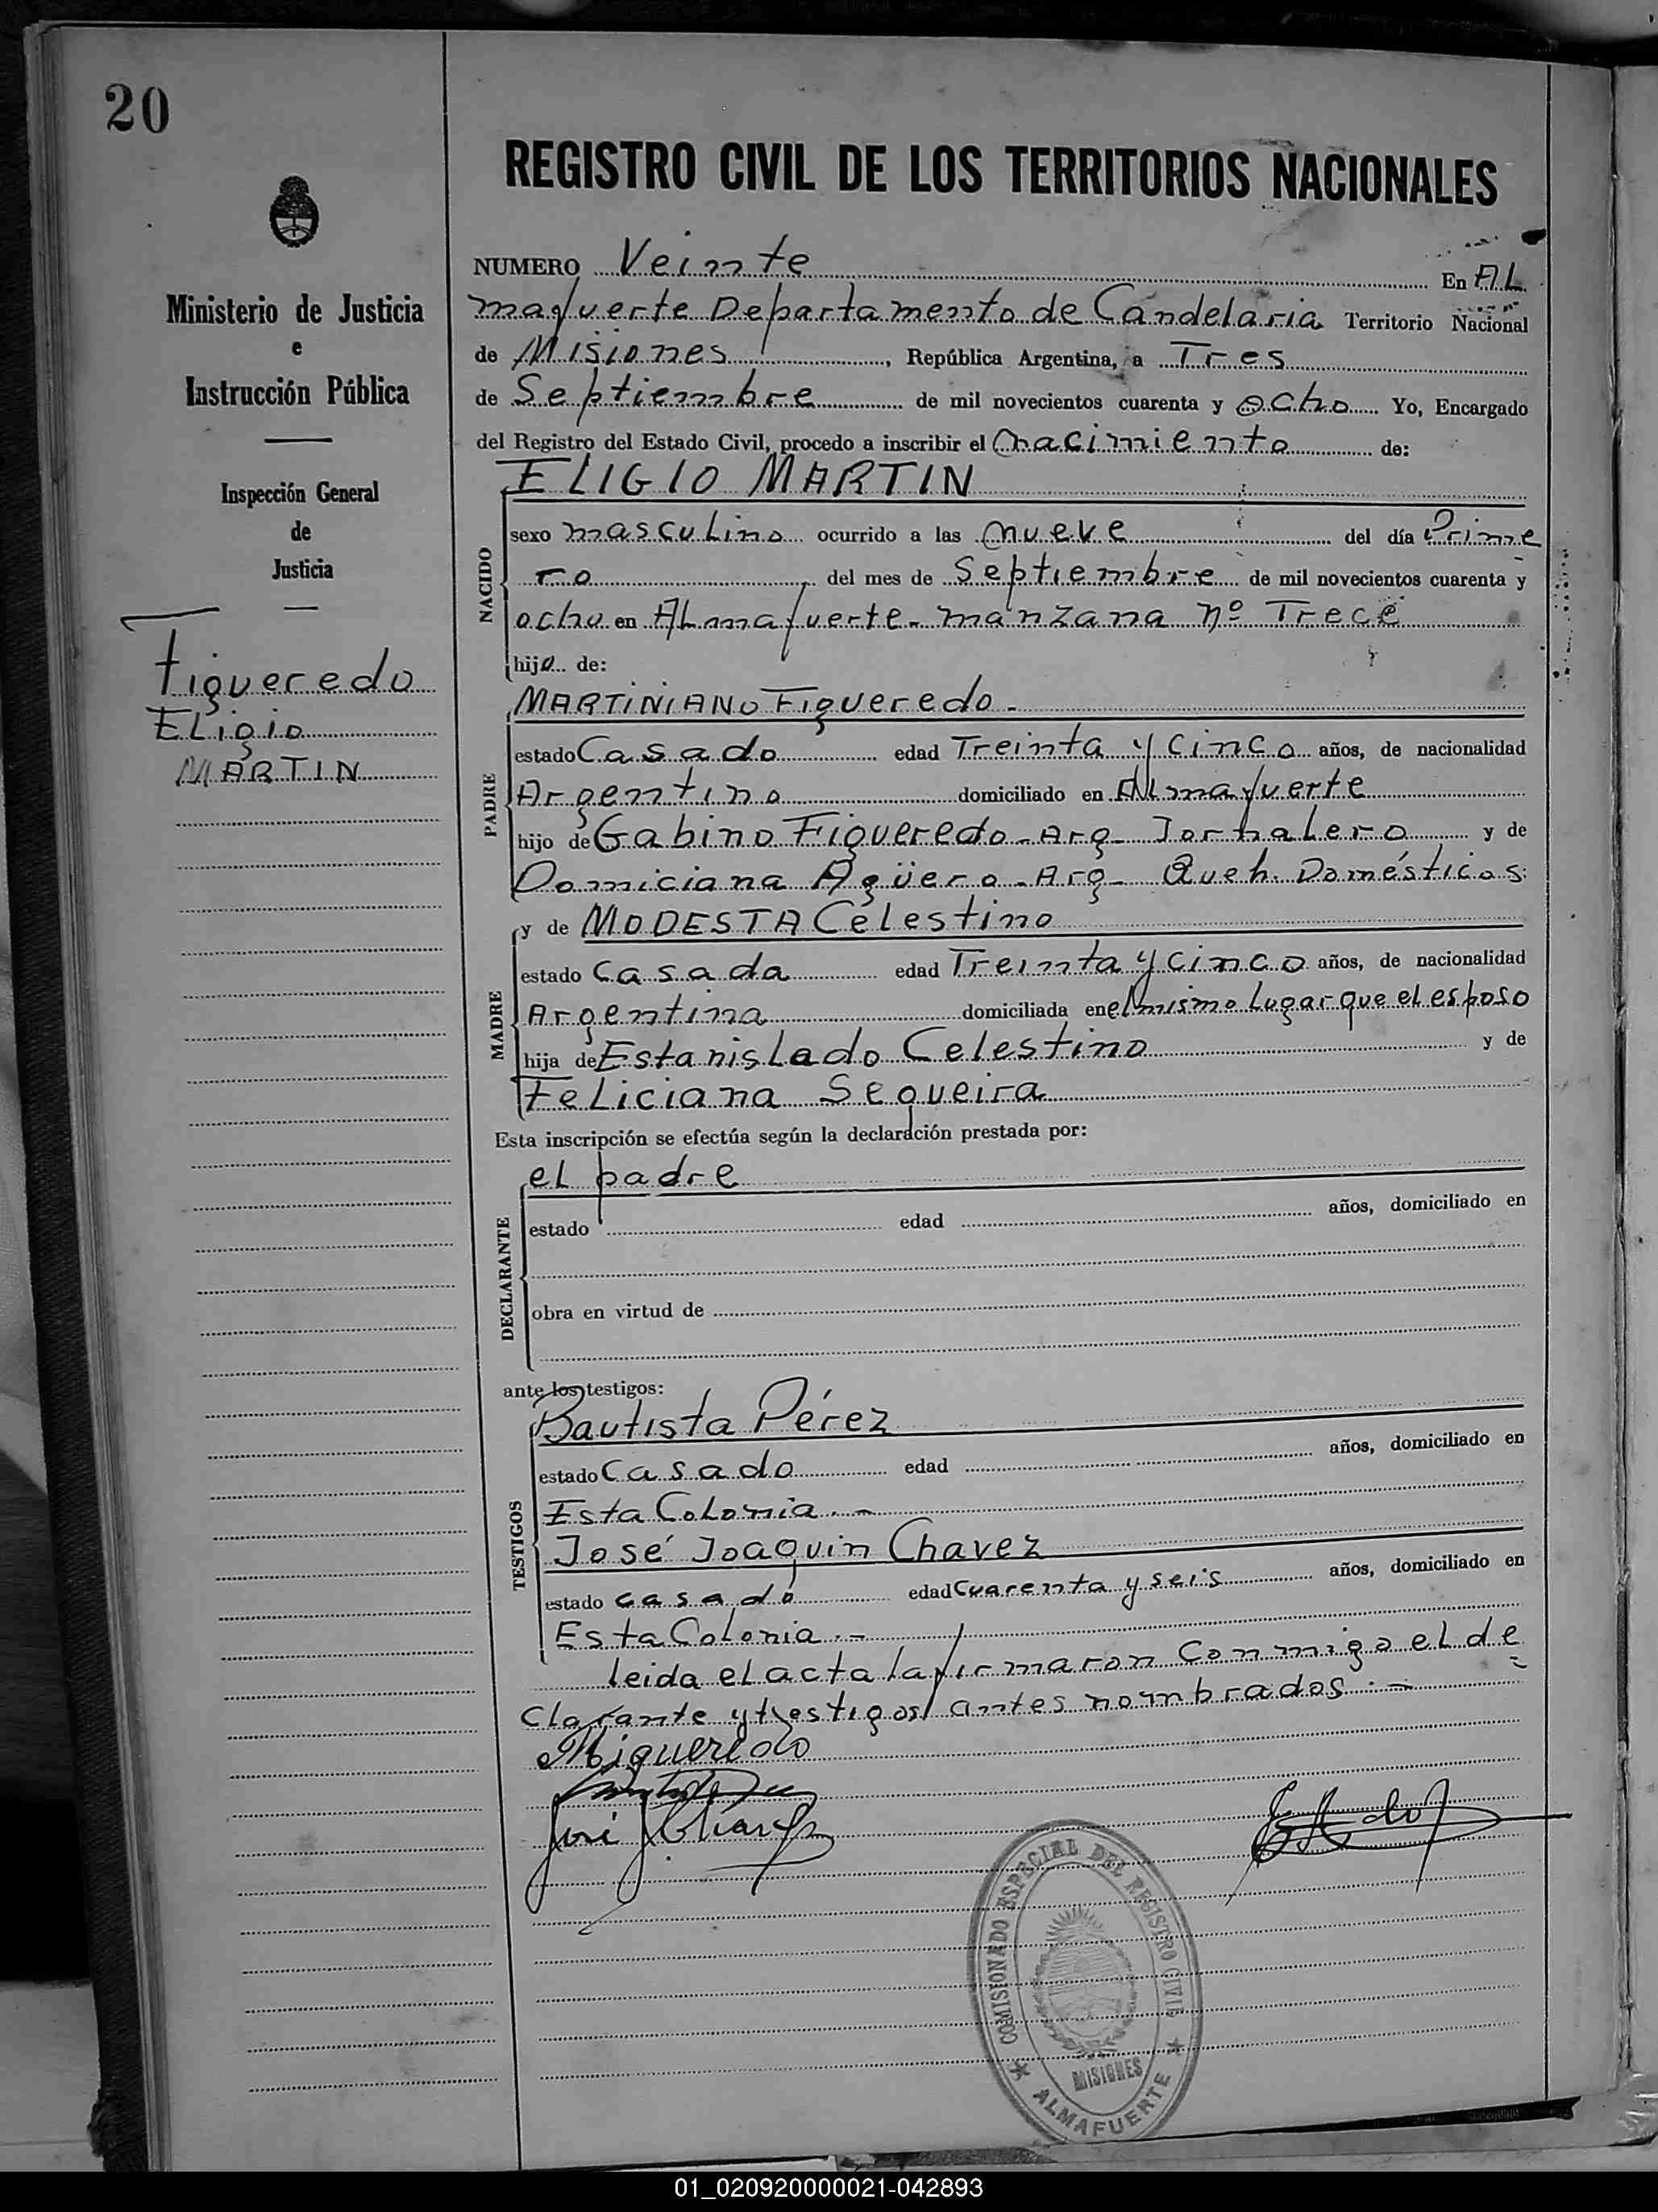 20
Ministerio de Justicia
e
Instrucción Pública
Inspección General
de
Justicia
Figueredo
ELigio
MARTIN
REGISTRO CIVIL DE LOS TERRITORIOS NACIONALES
NUMERO Veinte En AL
mafuerte Departamento de Candelaria Territorio Nacional
de Misiones, República Argentina, a Tres
de Septiembre de mil novecientos cuarenta y ocho Yo, Encargado
del Registro del Estado Civil, procedo a inscribir el nacimiento de:
NACIDO
ELIGIO MARTIN
sexo masculino ocurrido a las nueve del día Prime
ro del mes de Septiembre de mil novecientos cuarenta y
ocho en ALmafuerte - manzana nº Trece
hijo de:
PADRE
MARTINIANO Figueredo -
estado Casado edad Treinta y Cinco años, de nacionalidad
Argentino domiciliado en ALmafuerte
hijo de Gabino Figueredo - Arg - Jornalero y de
Domiciana Agüero - Arg - Queh. Domésticos
MADRE
y de MODESTA Celestino
estado Casada edad Treinta y Cinco años, de nacionalidad
Argentina domiciliada en el mismo Lugar que el esposo
hija de Estanislado Celestino y de
Feliciana Sequeira
Esta inscripción se efectúa según la declaración prestada por:
DECLARANTE
el padre
estado edad años, domiciliado en
obra en virtud de
ante los testigos:
TESTIGOS
Bautista Pérez
estado Casado edad años, domiciliado en
Esta Colonia.-
José Joaquin Chavez
estado casado edad Cuarenta y seis años, domiciliado en
Esta Colonia.-
leida el acta la firmaron conmigo el de
clarante y testigos antes nombrados.-
MFigueredo
José J Chavez
COMISIONADO ESPECIAL DEL REGISTRO CIVIL
MISIONES
ALMAFUERTE
01_020920000021-042893